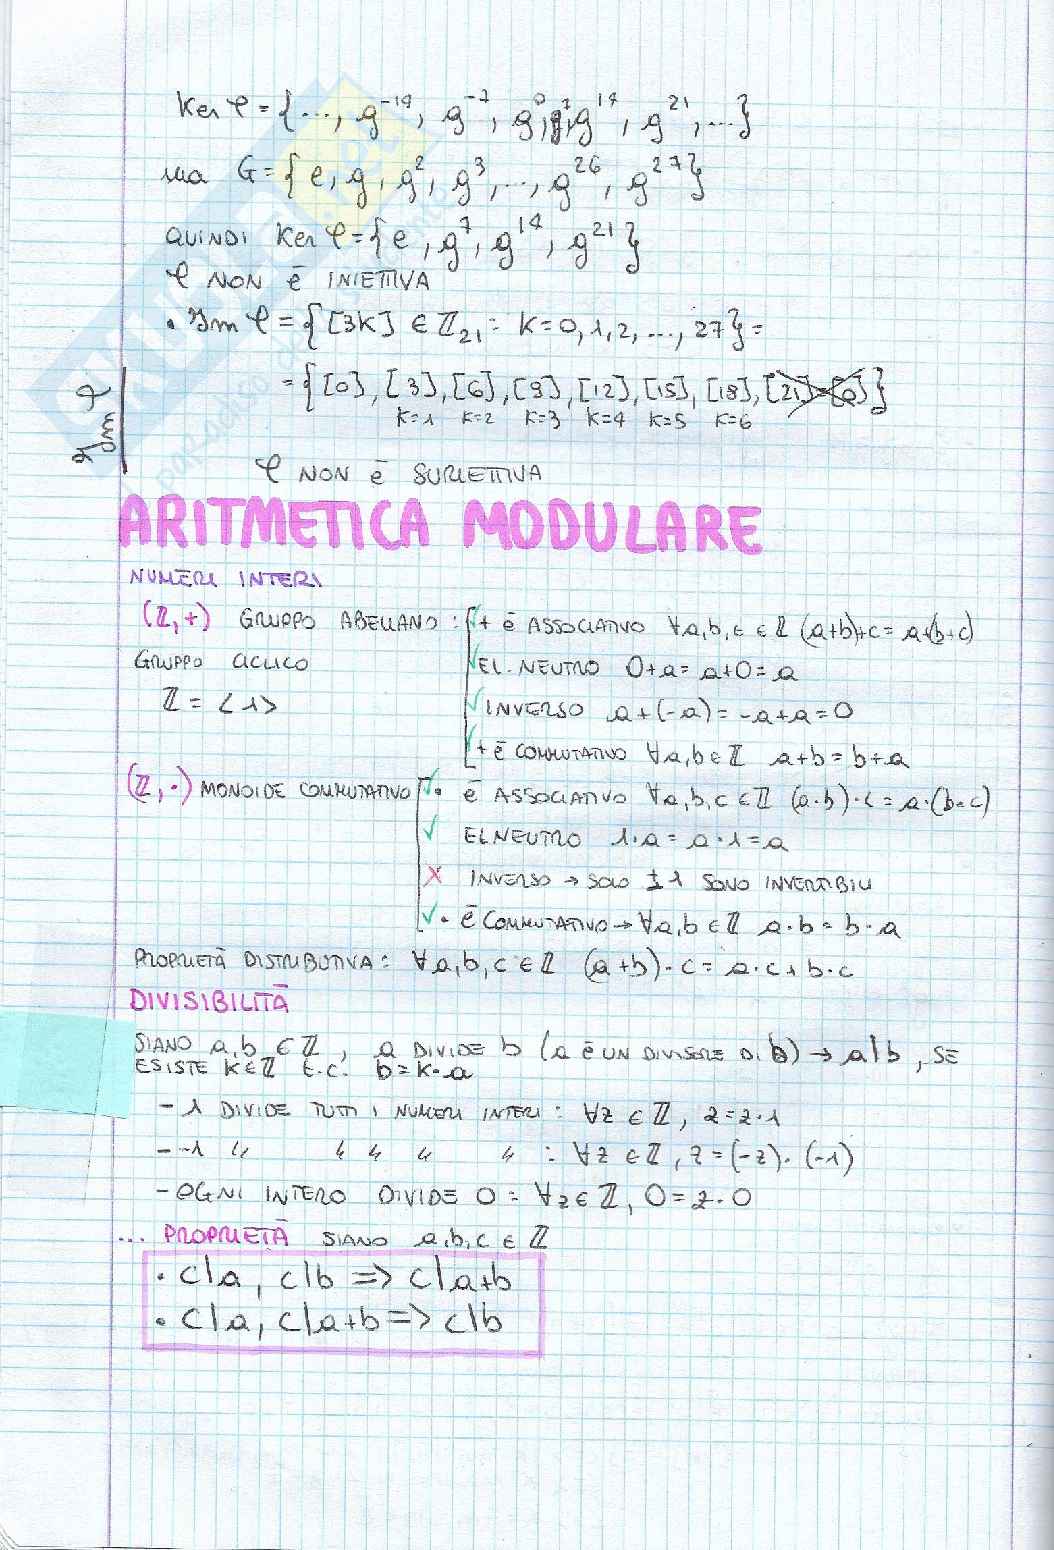 Ker φ = {..., g⁻¹⁴, g⁻⁷, g⁰, g⁷, g¹⁴, g²¹, ...}
ma G = {e, g, g², g³, ..., g²⁶, g²⁷}
QUINDI Ker φ = {e, g⁷, g¹⁴, g²¹}
φ NON È INIETTIVA
• Im φ = {[3K] ∈ ℤ₂₁ : K=0,1,2,...,27} =
= {[0], [3], [6], [9], [12], [15], [18], [21]=[0]}
K=1 K=2 K=3 K=4 K=5 K=6
Im φ
φ NON È SURIETTIVA
ARITMETICA MODULARE
NUMERI INTERI
(ℤ,+) GRUPPO ABELIANO : ✓ + è ASSOCIATIVO ∀a,b,c ∈ ℤ (a+b)+c = a+(b+c)
GRUPPO CICLICO ✓ EL. NEUTRO 0+a = a+0 = a
ℤ = <1> ✓ INVERSO a+(-a) = -a+a = 0
✓ + È COMMUTATIVO ∀a,b ∈ ℤ a+b = b+a
(ℤ,·) MONOIDE COMMUTATIVO ✓ • è ASSOCIATIVO ∀a,b,c ∈ ℤ (a·b)·c = a·(b·c)
✓ EL NEUTRO 1·a = a·1 = a
X INVERSO → SOLO ±1 SONO INVERTIBILI
✓ • È COMMUTATIVO → ∀a,b ∈ ℤ a·b = b·a
PROPRIETÀ DISTRIBUTIVA : ∀a,b,c ∈ ℤ (a+b)·c = a·c+b·c
DIVISIBILITÀ
SIANO a,b ∈ ℤ, a DIVIDE b (a È UN DIVISORE DI b) → a|b, SE
ESISTE K∈ℤ t.c. b=K·a
- 1 DIVIDE TUTTI I NUMERI INTERI : ∀z ∈ ℤ, z=z·1
- -1 " " " " " : ∀z ∈ ℤ, z=(-z)·(-1)
- OGNI INTERO DIVIDE 0 : ∀z∈ℤ, 0=z·0
... PROPRIETÀ SIANO a,b,c ∈ ℤ
• c|a, c|b => c|a+b
• c|a, c|a+b => c|b